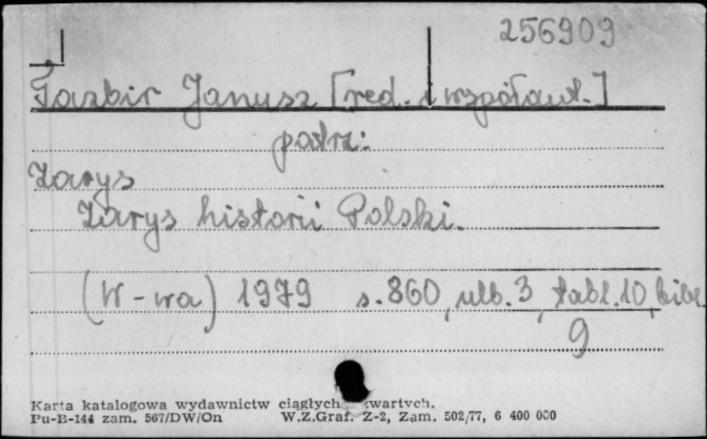 256909
Tazbir Janusz [red. i współaut.]
patrz:
Zarys
Zarys historii Polski.
(W-wa) 1979 s. 860, ulb. 3, tabl. 10, bibl.
9
Karta katalogowa wydawnictw ciągłych
Pu-B-144 zam. 567/DW/On W.Z.Graf. Z-2, Zam. 502/77, 6 400 000